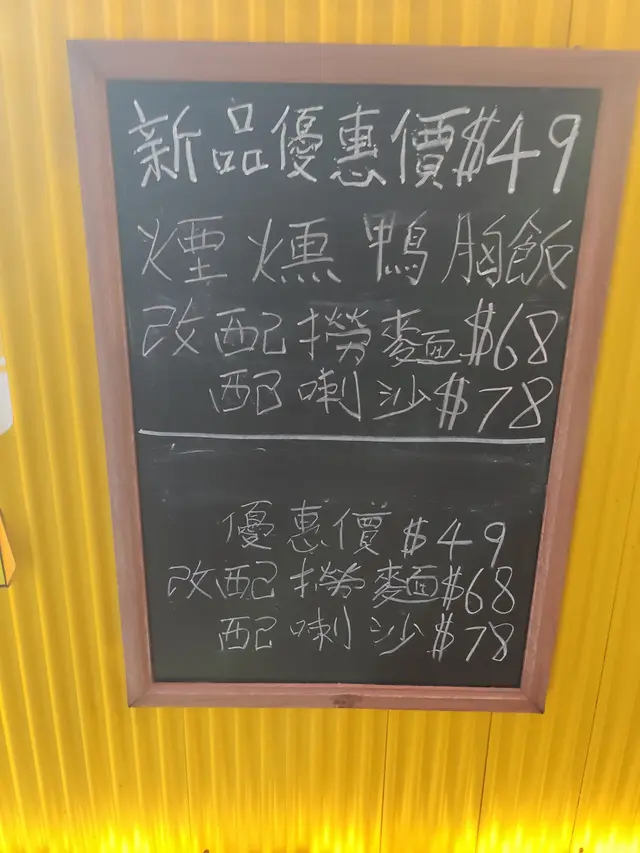 新品優惠價$49
煙燻鴨胸飯
改配撈麵$68
配喇沙$78
優惠價$49
改配撈麵$68
配喇沙$78